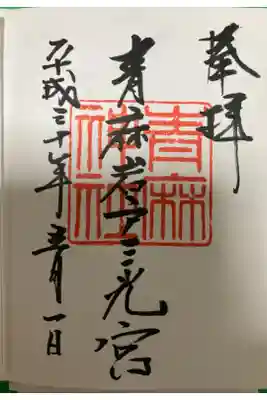 奉拝
青麻岩戸三光宮
平成三十年五月一日
青麻
神社